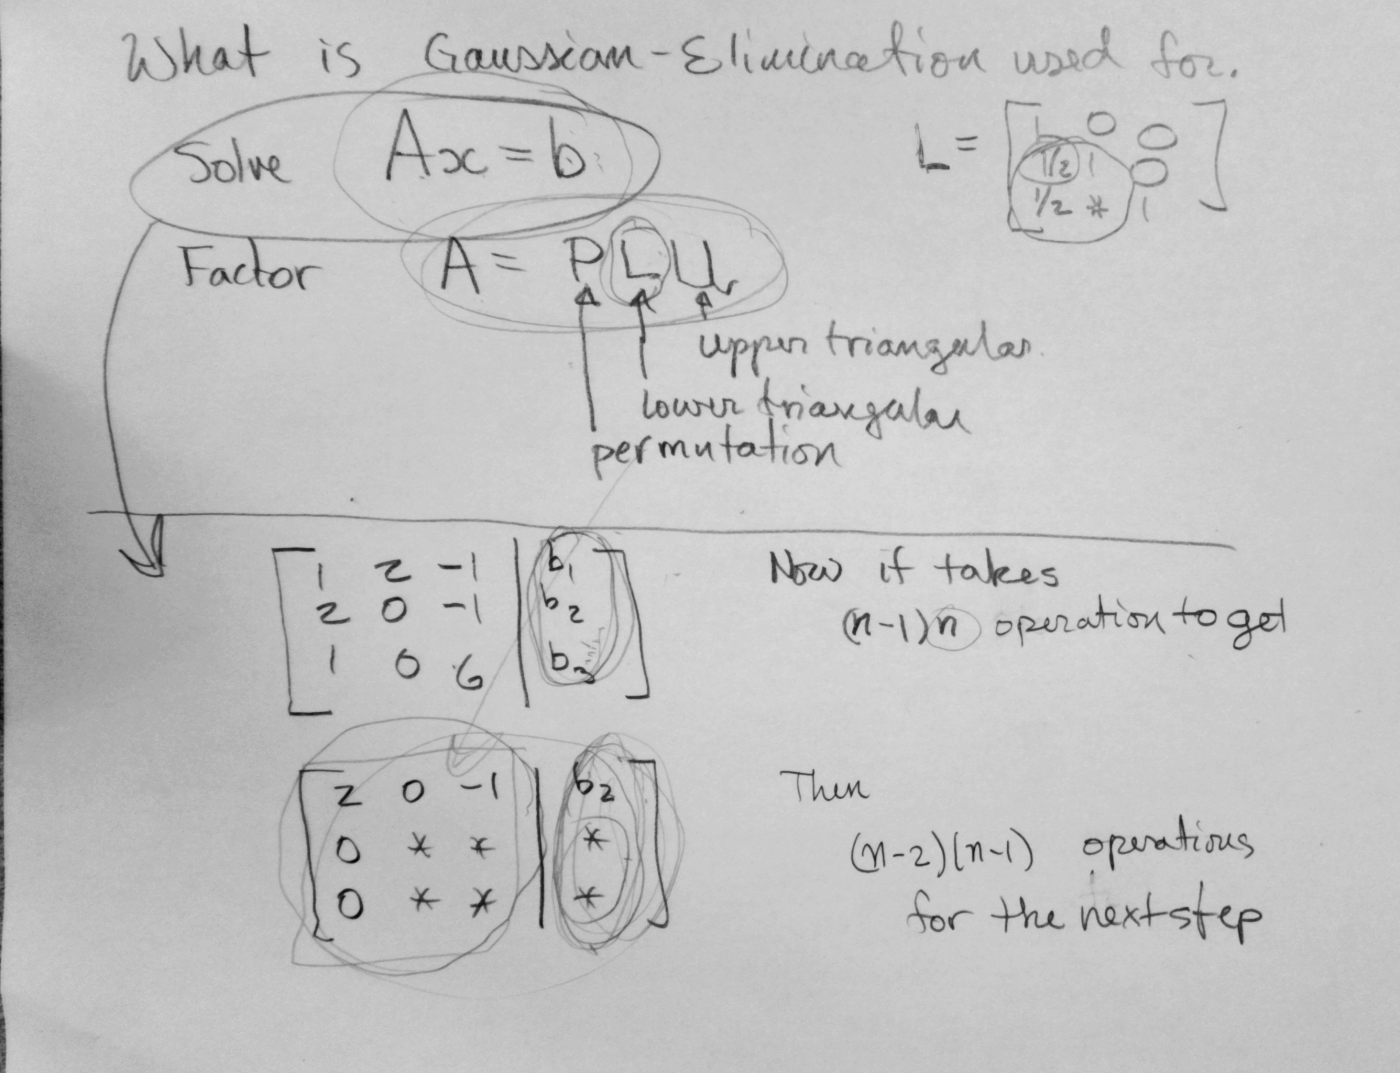 What is Gaussian-Elimination used for.
Solve Ax = b
L = [ 1 0 0
1/2 1 0
1/2 * 1 ]
Factor A = PLU
upper triangular
lower triangular
permutation
[ 1 2 -1 | b1
2 0 -1 | b2
1 0 6 | b3 ]
Now it takes
(n-1)n operation to get
[ 2 0 -1 | b2
0 * * | *
0 * * | * ]
Then
(n-2)(n-1) operations
for the next step